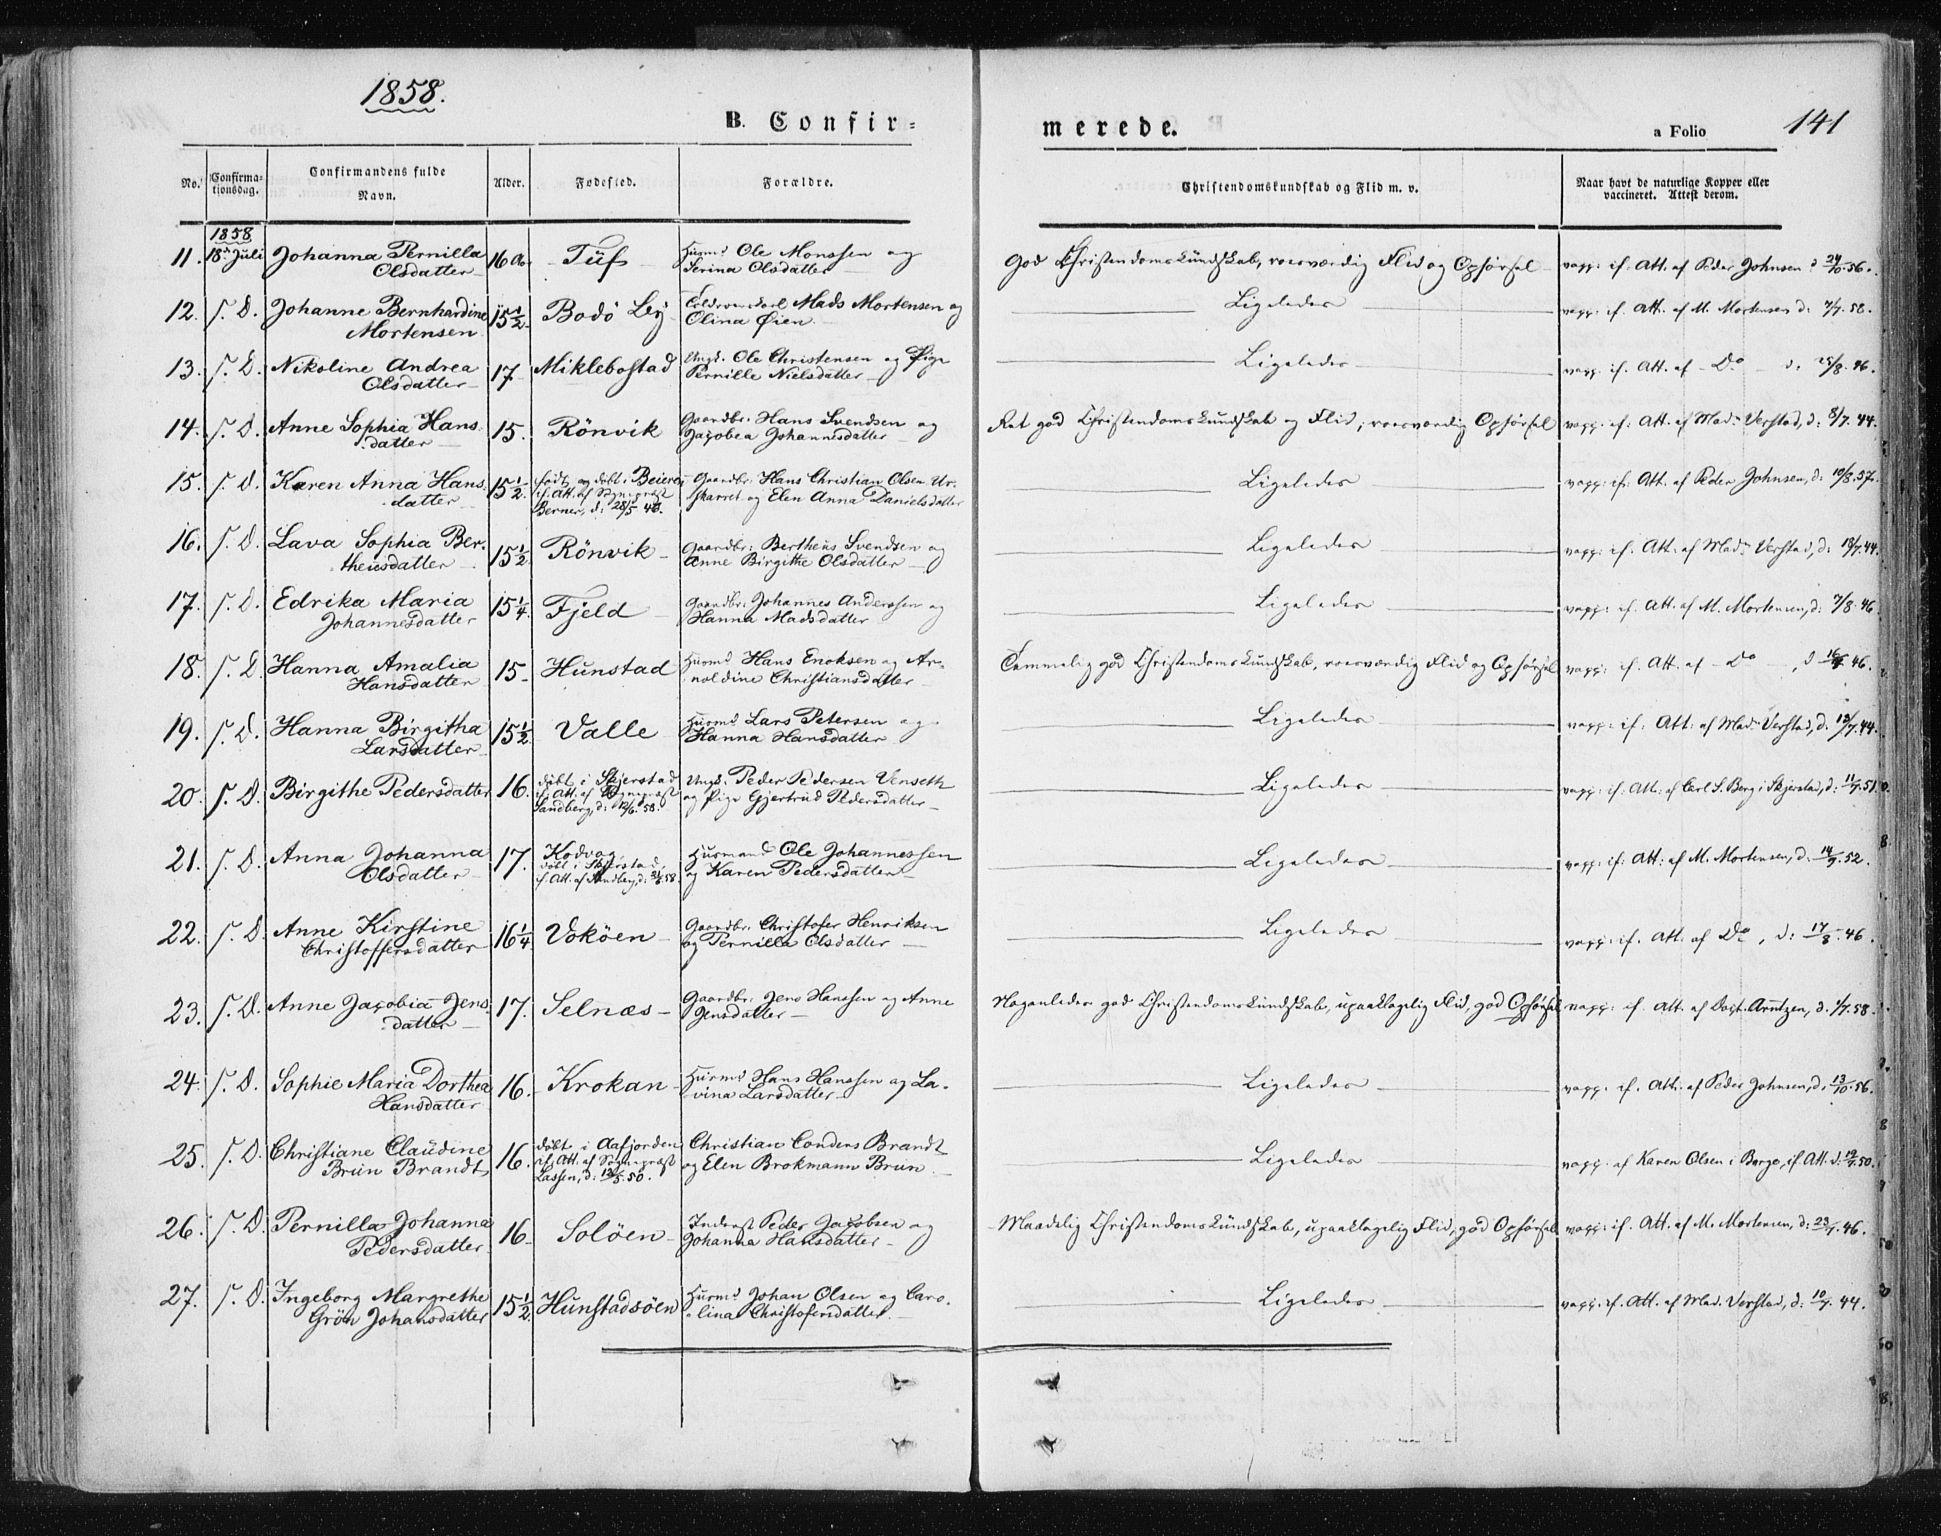 1858.
B. Confir=
merede.
a Folio 141
No.
Confirma-
tionsdag.
Confirmandens fulde
Navn.
Alder.
Fødested.
Forældre.
Christendomskundskab og Flid m. v.
Naar havt de naturlige Kopper eller
vaccineret. Attest derom.
1858
11. 18de Juli Johanna Pernilla
Olsdatter 16 Aa. Tüf Huusmd Ole Monssen og
Serina Olsdatter God Christendomskundskab, roesværdig Flid og Opførsel vacc: if. Att. af Peder Johnsen d 24/10.56.
12. s. D. Johanne Bernhardine
Mortensen 15 1/2 Bodö Bÿ Mads Mortensen og
Olina Øien Ligeledes vacc: if. Att. af M. Mortensen d: 7/7.58.
13. s. D. Nikoline Andrea
Olsdatter 17 Miklebostad Ungk. Ole Christensen og Pige
Pernille Nielsdatter Ligeledes vacc. if. Att. af Do d: 25/8.46.
14. s. D. Anne Sophia Hans
datter 15. Rönvik Gaardbr: Hans Svendsen og
Jacobea Johannesdatter Ret god Christendomskundskab og Flid, roesværdig Opførsel vacc. if. Att. af Mad. Verstad, d: 8/7.44.
15. s. D. Karen Anna Hans
datter 15 1/2. født og døbt i Beieren
if. Att. af Sognepræst
Berner, d: 28/5 Gaardbr: Hans Christian Olsen Ur-
skarret og Elen Anna Danielsdatter Ligeledes vacc: if. Att. af Peder Johnsen, d: 10/8.57.
16. s. D. Lava Sophia Ber-
theüsdatter 15 1/2 Rönvik Gaardbr: Bertheüs Svendsen og
Anne Birgithe Olsdatter Ligeledes vacc: if. Att. af Mad. Verstad, d: 18/7.44.
17. s. D. Edrika Maria
Johannesdatter 15 1/4. Fjeld Gaardbr: Johannes Anderssen og
Hanna Madsdatter Ligeledes vacc: if. Att. af M. Mortensen, d: 7/8.46
18. s. D. Hanna Amalia
Hansdatter 15 Hunstad Huusmd Hans Enoksen og Ar-
noldine Christiansdatter Temmelig god Christendomskundskab, roesværdig Flid og Opførsel vacc: if. Att. af Do, d 46.
19. s. D. Hanna Birgitha
Larsdatter 15 1/2 Valle Huusmd Lars Petersen og
Hanna Hansdatter Ligeledes vacc: if. Att: af Mad. Verstad, d. 13/7.44.
20. s. D. Birgithe Pedersdatter 16. døbt i Skjerstad
if. Att. af Sognepræst
Sandberg, d: 12/6.58. Ungk. Peder Pedersen Venseth
og Pige Gjertrud Pedersdatter Ligeledes vacc: if. Att: af Carl S. Berg i Skjerstad, d: 11/7.51.
21. s. D. Anna Johanna
Olsdatter 17. Kodvog
døbt i Skjerstad,
if. Att. af Sandberg, d: 58. Huusmand Ole Johannessen
og Karen Pedersdatter Ligeledes vacc: if: Att: af M. Mortensen, d: 14/9.52.
22. s. D. Anne Kirstine
Christoffersdatter 16 1/4 Vokøen Gaardbr. Christofer Henriksen
og Pernilla Olsdatter Ligeledes vacc: if. Att: af Do, d: 17/8.46.
23. s. D. Anne Jacobia Jens
datter 17. Selnæs Gaardbr: Jens Hanssen og Anne
Jensdatter Nogenledes god Christendomskundskab, upaaklagelig Flid, god Opførsel vacc: if. Att. af Dist. Arntzen, d. 1/7.58.
24. s. D. Sophie Maria Dorthea
Hansdatter 16. Krokan Huusmd Hans Hanssen og La-
vina Larsdatter Ligeledes vacc: if. Att: af Peder Johnsen, d: 13/10.56.
25. s. D. Christiane Claüdine
Brün Brandt 16. døbt i Aafjorden
if. Att. af Sognepræst
Lassen, d: 12/5.50. Christian Condens Brandt
og Elen Brokmann Brün Ligeledes vacc. af Karen Olsen i Borge, if. Att. d: 19/9.50.
26. s. D. Pernilla Johanna
Pedersdatter 16 Soløen Inderst Peder Jacobsen og
Johanna Hansdatter Maadelig Christendomskundskab, upaaklagelig Flid, god Opførsel vacc: if. Att. af M. Mortensen, d: 23/7.46.
27. s. D. Ingeborg Margrethe
Grön Johansdatter 15 1/2 Hunstadsöen Huusmd Johan Olsen og Caro-
lina Christofersdatter Ligeledes vacc: if. Att. af Mad. Verstad, d: 10/7.44.